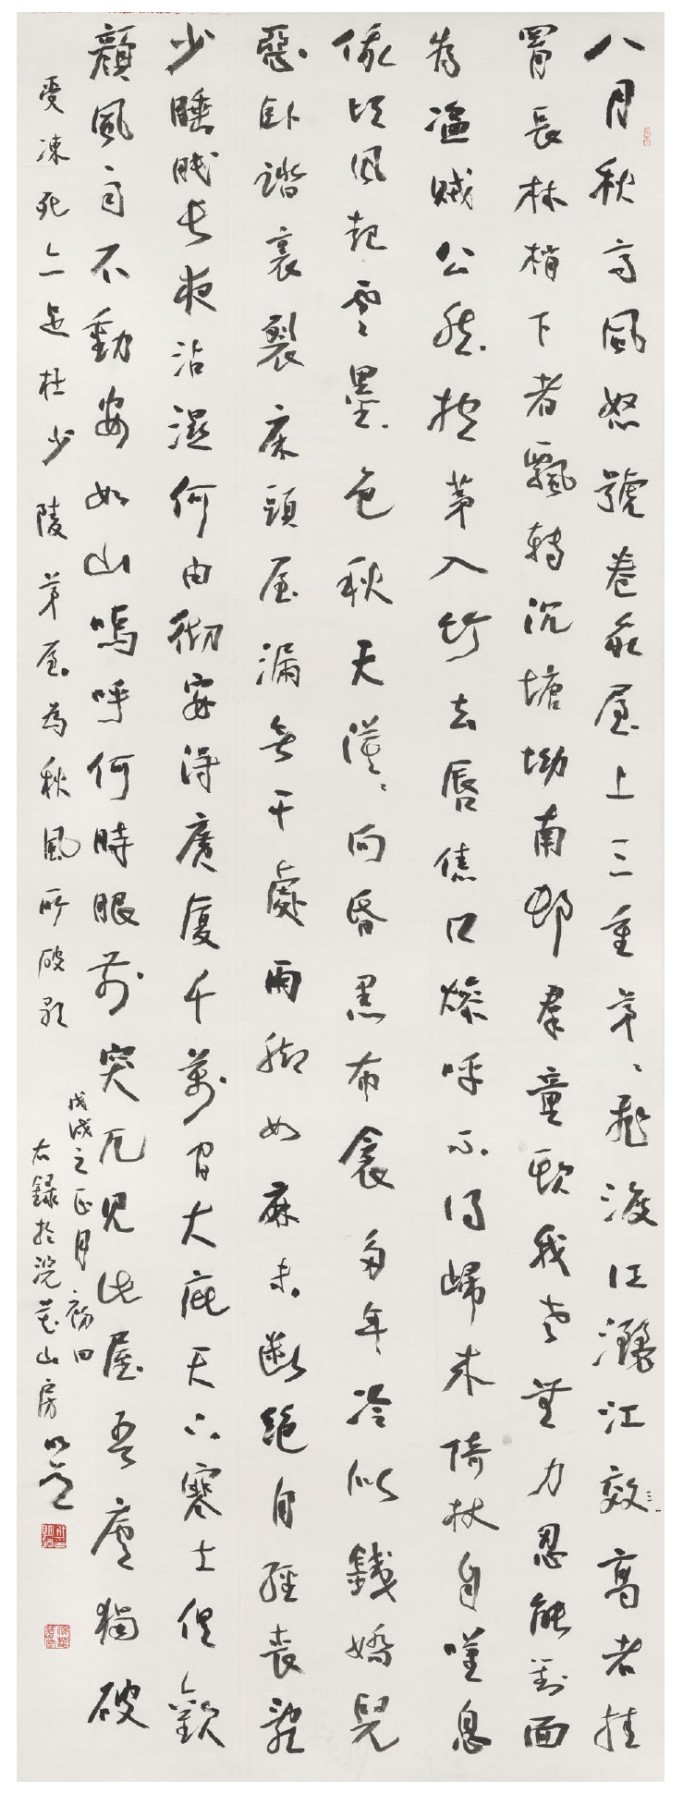 八月秋高風怒號卷我屋上三重茅、飛渡江灑江效高者挂
罥長林梢下者飄轉沉塘坳南邨群童欺我老無力忍能對面
為盜賊公然抱茅入竹去唇焦口燥呼不得歸來倚杖自嘆息
俄頃風起雲墨色秋天漠、向昏黑布衾多年冷似鐵嬌兒
惡臥踏裏裂床頭屋漏無干處雨腳如麻未斷絕自經喪亂
少睡眠長夜沾濕何由徹安得廣廈千萬間大庇天下寒士俱歡
顏風雨不動安如山嗚呼何時眼前突兀見此屋吾廬獨破
受凍死亦足杜少陵茅屋為秋風所破歌
戊戌之正月初四
右錄於浣花山房